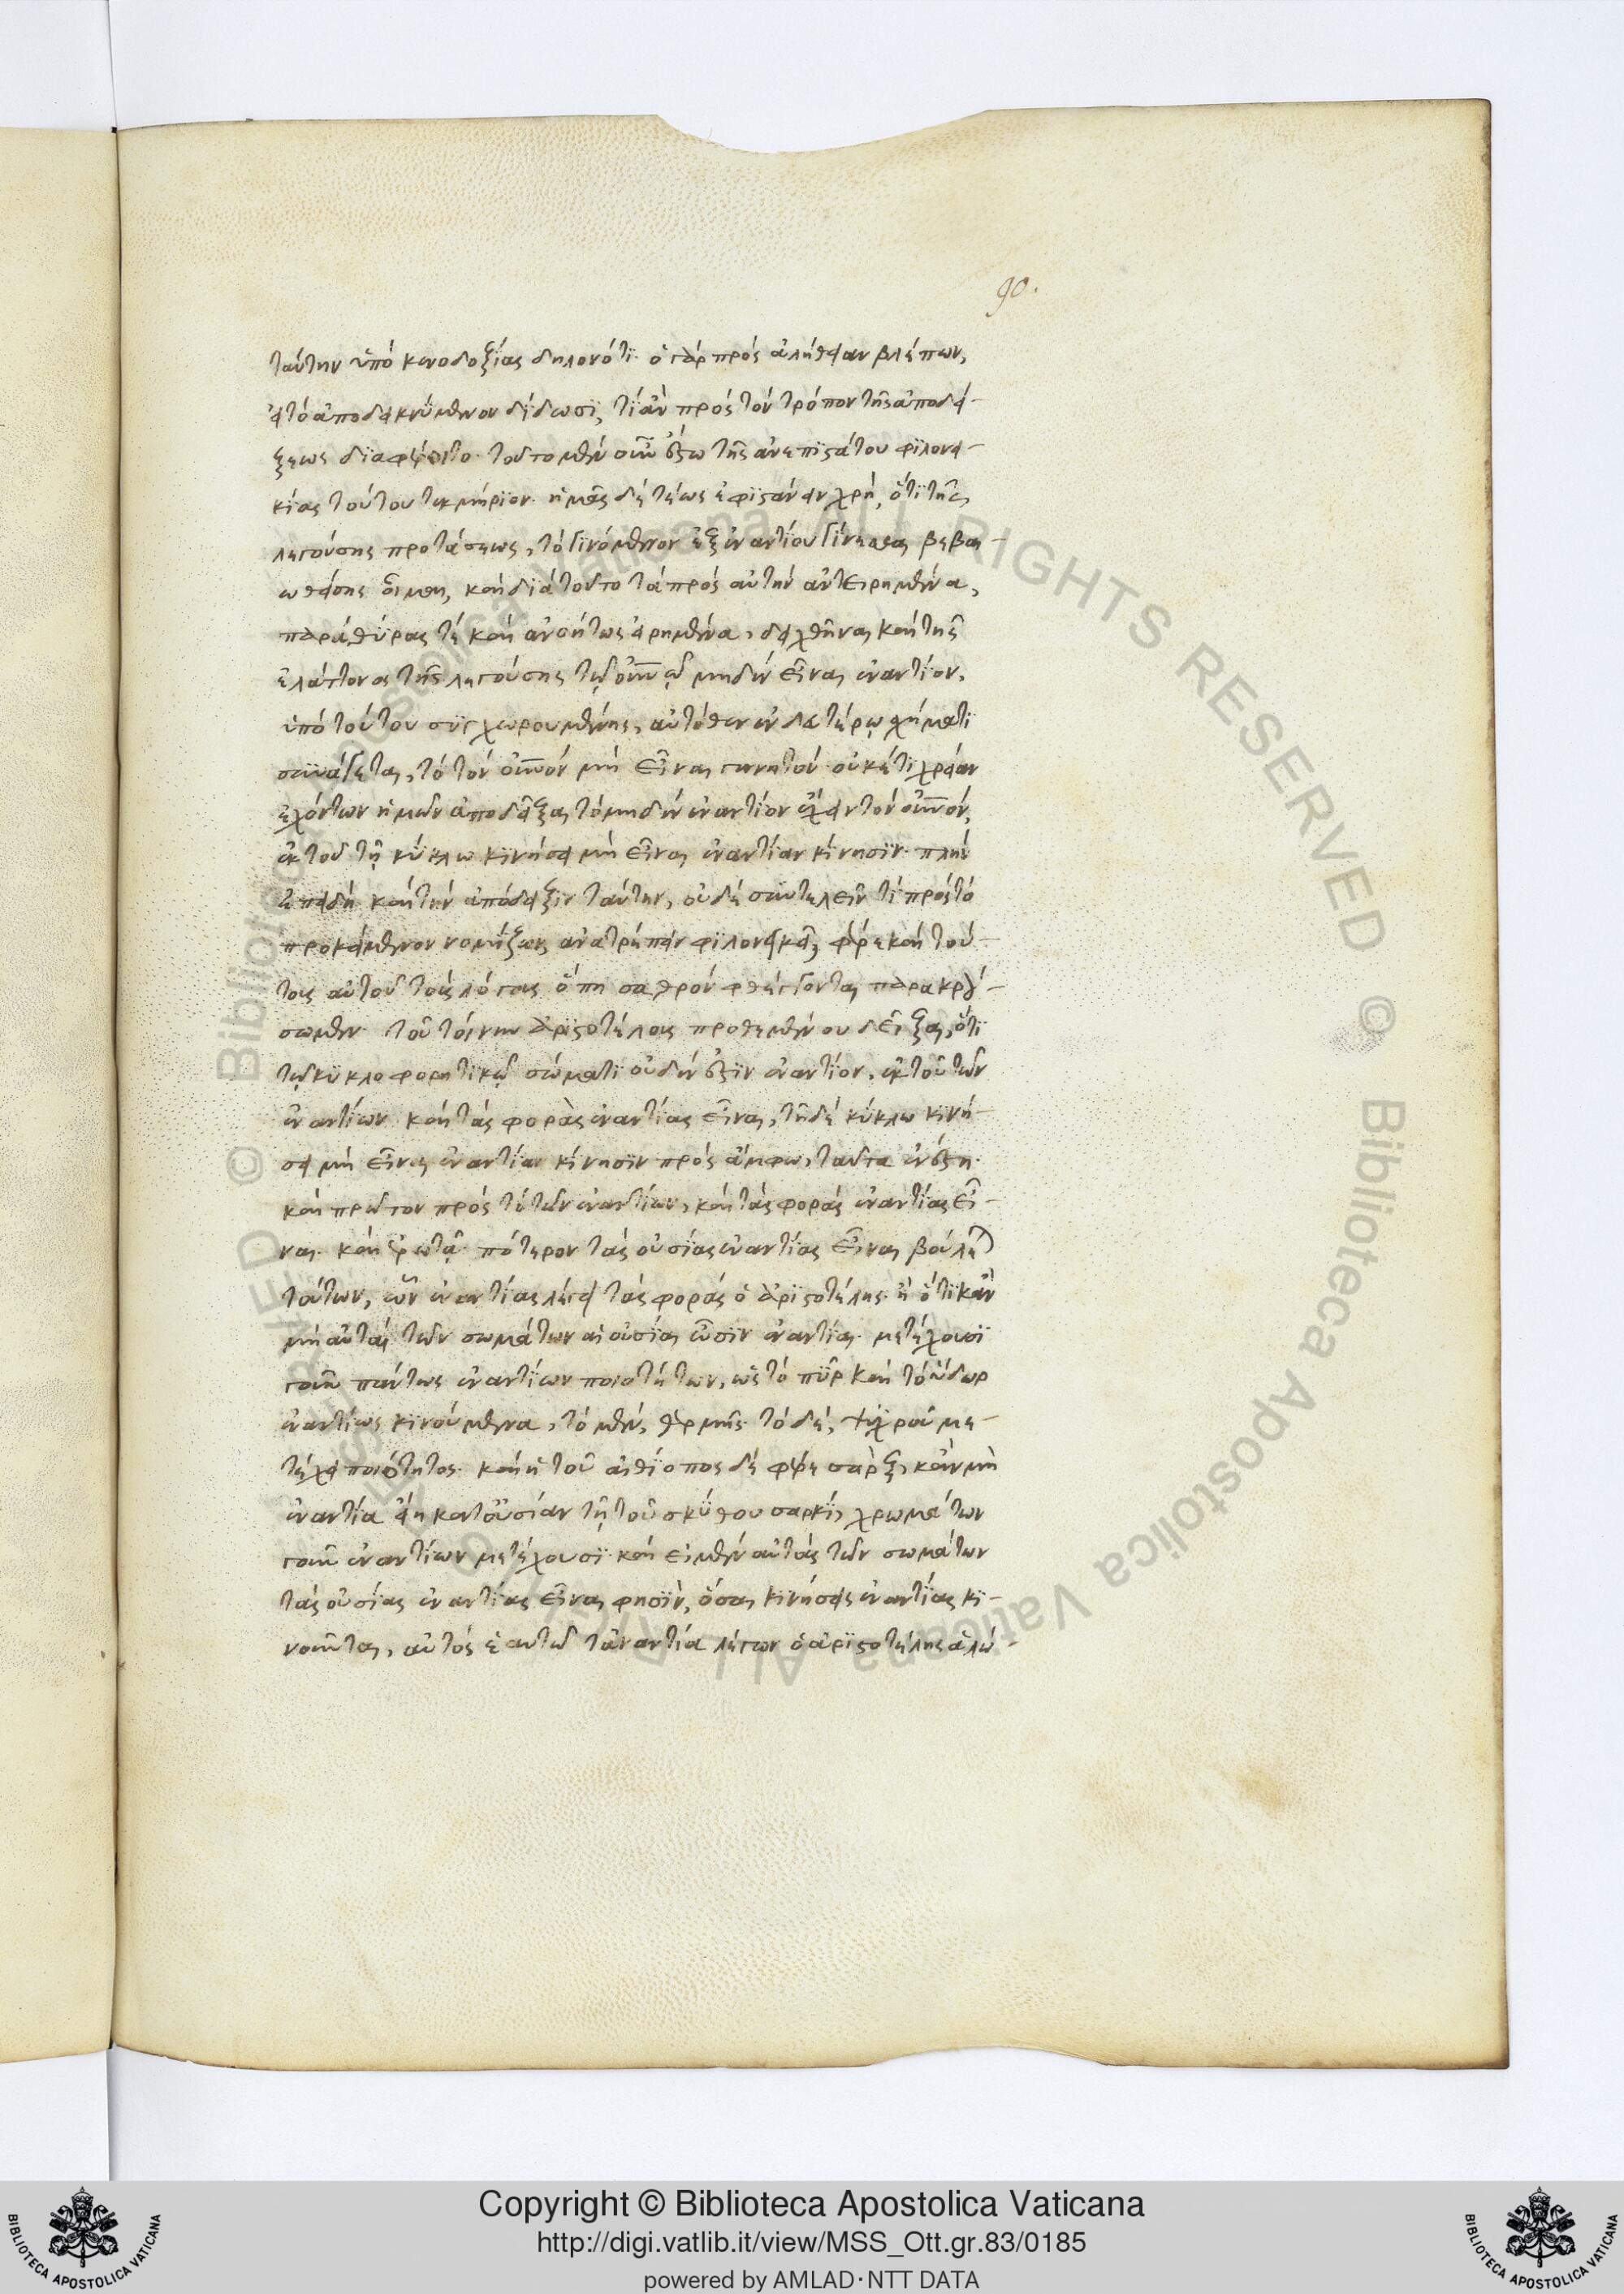 90.
ταύτην ὑπὸ κενοδοξίας δηλονότι· ὁ γὰρ πρὸς ἀλήθειαν βλέπων,
εἰ τὸ ἀποδεικνύμενον δίδωσι, τί ἂν πρὸς τὸν τρόπον τῆς ἀποδεί-
ξεως διαφέροιτο· τοῦτο μὲν οὖν ἔστω τῆς ἀνεπιστάτου φιλονει-
κίας τούτου τεκμήριον· ἡμᾶς δὲ τέως ἐφιστάνειν χρή, ὅτι τῆς
λεγούσης προτάσεως, τὸ γινόμενον ἐξ ἐναντίου γίνεσθαι βεβαι-
ωθείσης οἶμαι, καὶ διὰ τοῦτο τὰ πρὸς αὐτὴν ἀντειρημένα,
παρὰ θύρας τὲ καὶ ἀνοήτως εἰρημένα, δειχθῆναι καὶ τῆς
ἐλάττονος τῆς λεγούσης τῷ οὐνῷ μηδὲν εἶναι ἐναντίον,
ὑπὸ τούτου συγχωρουμένης, αὐτόθεν ἐν δευτέρῳ σχήματι
συνάγεται, τὸ τὸν οὐνὸν μὴ εἶναι γενητόν· οὐκέτι χρείαν
ἐχόντων ἡμῶν ἀποδεῖξαι τὸ μηδὲν ἐναντίον ἔχειν τὸν οὐνόν,
ἐκ τοῦ τῇ κύκλω κινήσει μὴ εἶναι ἐναντίαν κίνησιν· πλὴν
ἐπειδὴ καὶ τὴν ἀπόδειξιν ταύτην, οὐδὲ συντελεῖν τὶ πρὸς τὸ
προκείμενον νομίζων ἀνατρέπειν φιλονεικεῖ, φέρε καὶ τού-
τοις αὐτοῦ τοῖς λόγοις ὅπη σαθρὸν φθέγγονται παρακολου-
σωμεν· τοῦ τοίνυν ἀριστοτέλους προθεμένου δεῖξαι, ὅτι
τῷ κυκλοφορητικῷ σώματι οὐδὲν ἔστιν ἐναντίον, ἐκ τοῦ τῶν
ἐναντίων καὶ τὰς φορὰς ἐναντίας εἶναι, τῇ δὲ κύκλω κινή-
σει μὴ εἶναι ἐναντίαν κίνησιν πρὸς ἄμφω, ταῦτα ἐνέστη·
καὶ πρῶτον πρὸς τὸ τῶν ἐναντίων, καὶ τὰς φορὰς ἐναντίας εἶ-
ναι· καὶ ἐρωτᾷ· πότερον τὰς οὐσίας ἐναντίας εἶναι βούλεται
τούτων, ὧν ἐναντίας λέγει τὰς φορὰς ὁ ἀριστοτέλης· ἢ ὅτι κἂν
μὴ αὐταὶ τῶν σωμάτων αἱ οὐσίαι ὦσιν ἐναντίαι· μετέχουσι
γοῦν πάντως ἐναντίων ποιοτήτων, ὡς τὸ πῦρ καὶ τὸ ὕδωρ
ἐναντίως κινούμενα, τὸ μὲν, θερμῆς· τὸ δὲ, ψυχροῦ με-
τέχει ποιότητος· καὶ ἡ τοῦ αἰθίοπος δὲ φέρε σὰρξ, κἂν μὴ
ἐναντία εἴη κατ' οὐσίαν τῇ τοῦ σκύθου σαρκί, χρωμάτων
γοῦν ἐναντίων μετέχουσι· καὶ εἰ μὲν αὐτὰς τῶν σωμάτων
τὰς οὐσίας ἐναντίας εἶναι φησὶν, ὅσαι κινήσεις ἐναντίας κι-
νοῦνται, αὐτὸς ἑαυτῶ τἀναντία λέγων ὁ ἀριστοτέλης ἁλώ-
Copyright © Biblioteca Apostolica Vaticana
http://digi.vatlib.it/view/MSS_Ott.gr.83/0185
powered by AMLAD·NTT DATA